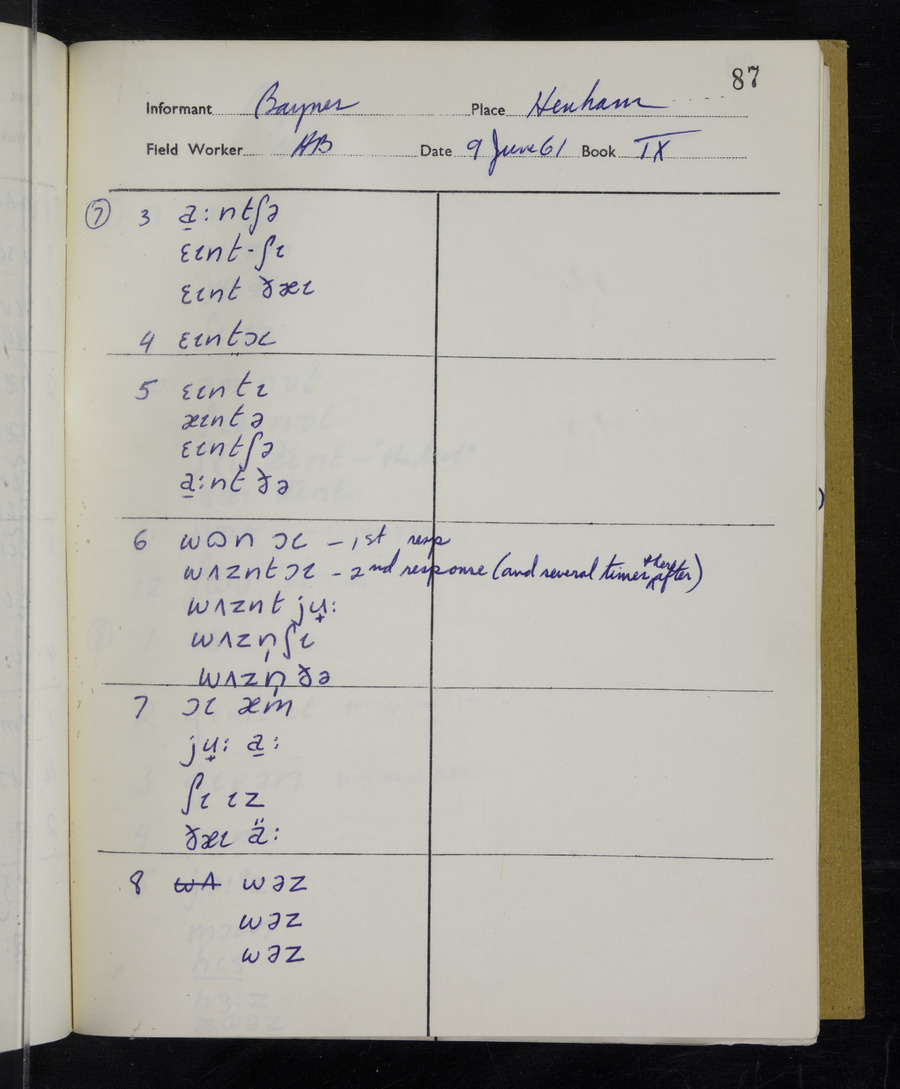 87
Informant Baynes Place Henham
Field Worker AB Date 9 June 61 Book IX
⑦ 3 a̱:ntʃə
ɛɩnt-ʃɩ
ɛɩnt ðæɩ
4 ɛɩntɔɩ
5 ɛɩntɩ
æɩntə
ɛɩntʃə
a̱:nt ðə
6 wɒn ɔɩ – 1st resp
wʌznt ɔɩ – 2nd response (and several times thereafter)
wʌznt ju̟:
wʌzn̩ʃɩ
wʌzn̩ ðə
7 ɔɩ æm
ju̟: a̱:
ʃɩ ɩz
ðæɩ ä:
8 wʌ wəz
wəz
wəz